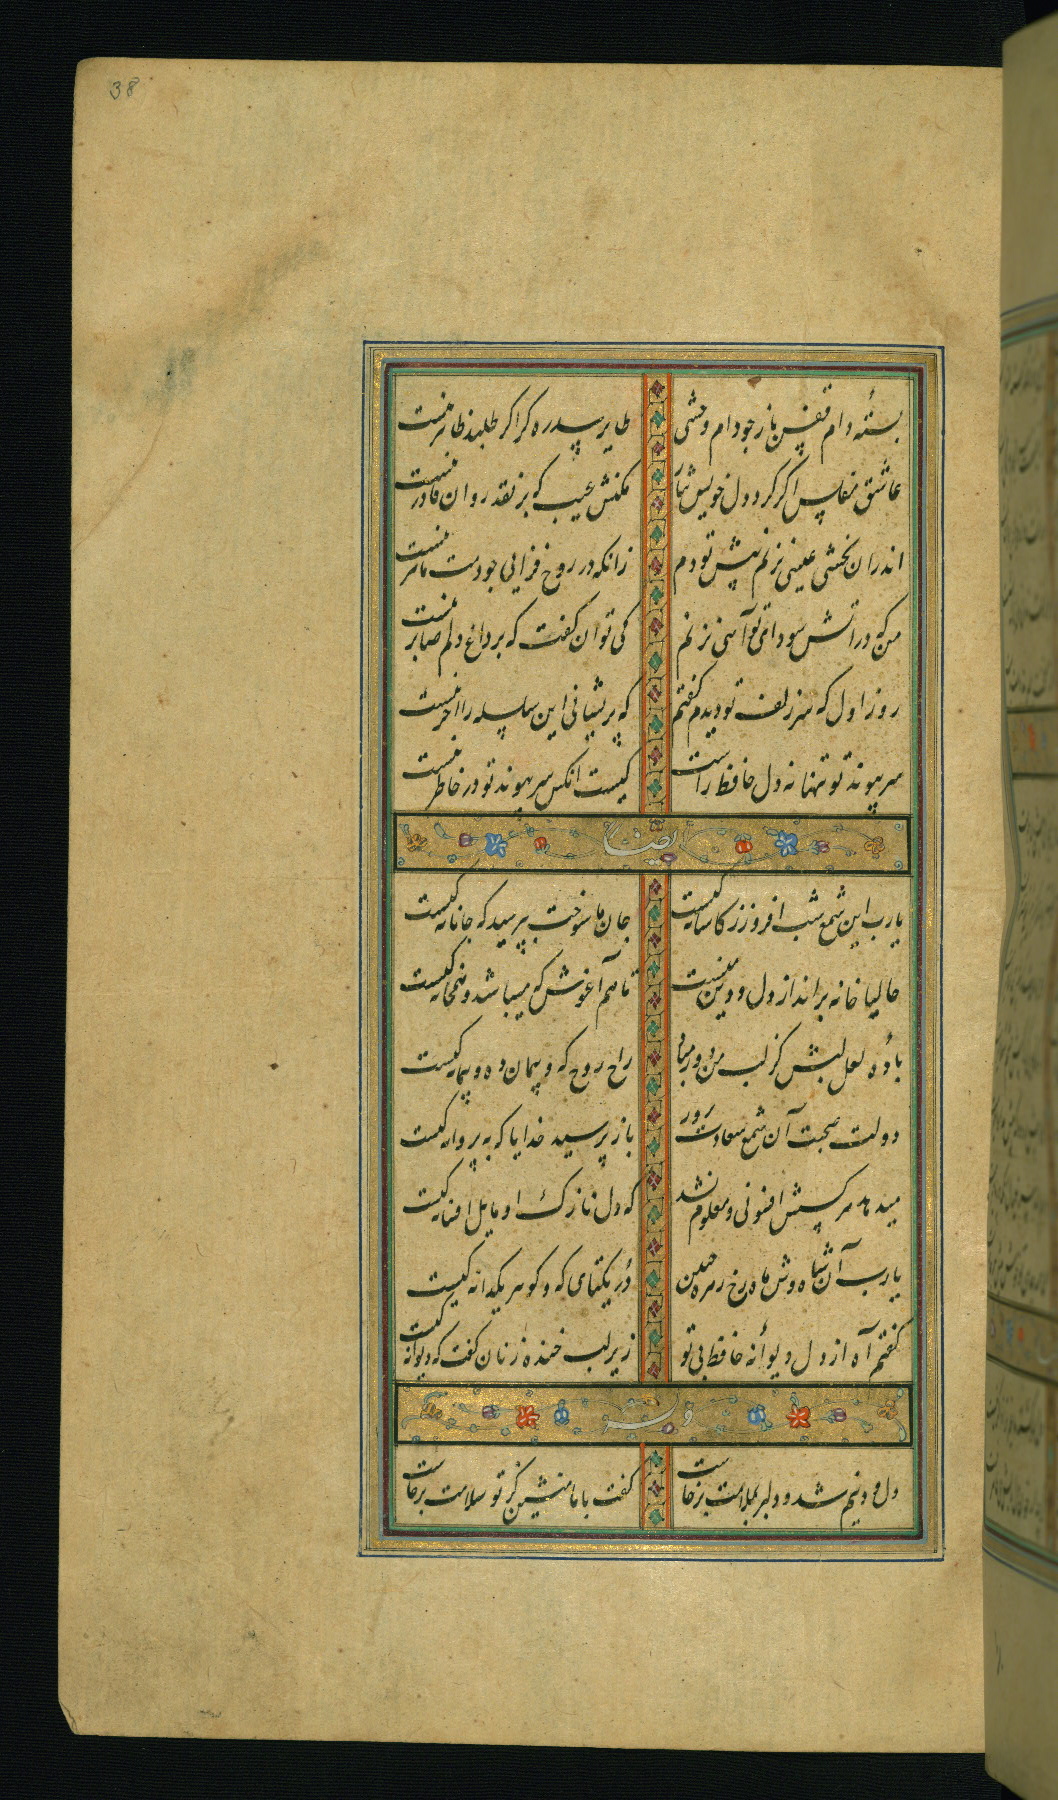 38
بستهٔ دام قفس باز جو دام وحشی طایر سدره کر اکر طلبد طایر نیست
عاشق مفلس اکر کرد دل خویش نثار مکنش عیب که بر نقد روان قادر نیست
اندران بخشی عیسی نزنم پیش تو دم زانکه در روح فزایی جو دمت ماهر نیست
من که در اتش سودای تو آهی نزنم کی توان کفت که بر داغ دلم صابر نیست
روز اول که سر زلف تو دیدم کفتم که پریشانی این سلسله را اخر نیست
سر پیوند تو تنها نه دل حافظ راست کیست انکس سر پیوند تو در خاطر نیست
ایضا
یارب این شمع شب افروز ز کاشانه کیست جان ما سوخت بپرسید که جانانه کیست
حالیا خانه برانداز دل و دین منست تا هم آغوش که میباشد و همخانه کیست
بادهٔ لعل لبش کز لب من دور مباد راح روح که و پیمان ده و پیمانه کیست
دولت صحبت آن شمع سعادت پرتو باز پرسید خدایا که به پروانه کیست
میدمد هر کسش افسونی و معلوم نشد که دل نازک او مایل افسانه کیست
یارب آن شاه وش ماه رخ زهره جبین در یکتای که و کوهر یکدانه کیست
کفتم آه از دل دیوانهٔ حافظ بی تو زیر لب خنده زنان کفت که دیوانه کیست
وله
دل و دینم شد و دلبر بملامت برخاست کفت با ما منشین کز تو سلامت برخاست